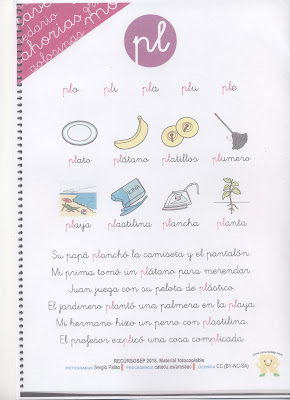 pl
plo pli pla plu ple
plato plátano platillos plumero
playa plastilina plancha planta
Su papá planchó la camiseta y el pantalón.
Mi prima tomó un plátano para merendar.
Juan juega con su pelota de plástico.
El jardinero plantó una palmera en la playa.
Mi hermano hizo un perro con plastilina.
El profesor explicó una cosa complicada.
RECURSOSEP 2015. Material fotocopiable
PICTOGRAMAS Sergio Palao PROCEDENCIA catedu.es/arasaac LICENCIA CC (BY-NC-SA)